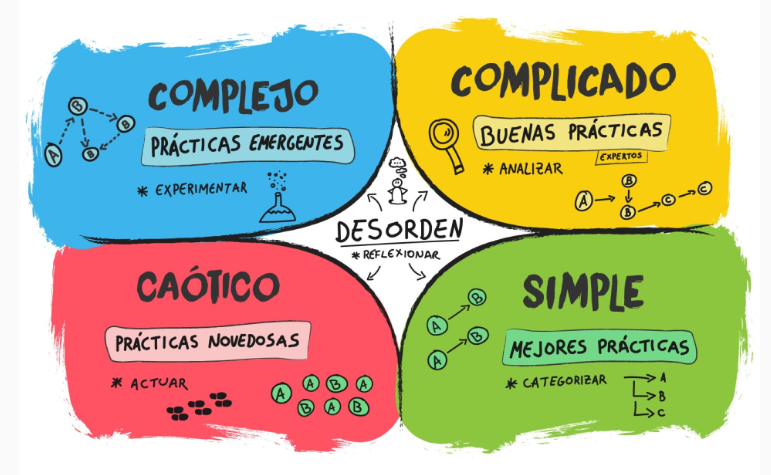 COMPLEJO
PRÁCTICAS EMERGENTES
* EXPERIMENTAR
A
B
B
B
COMPLICADO
BUENAS PRÁCTICAS
EXPERTOS
* ANALIZAR
A
B
B
C
C
DESORDEN
* REFLEXIONAR
CAÓTICO
PRÁCTICAS NOVEDOSAS
* ACTUAR
A
A B A
B A B
SIMPLE
A B
A B
MEJORES PRÁCTICAS
* CATEGORIZAR
A
B
C